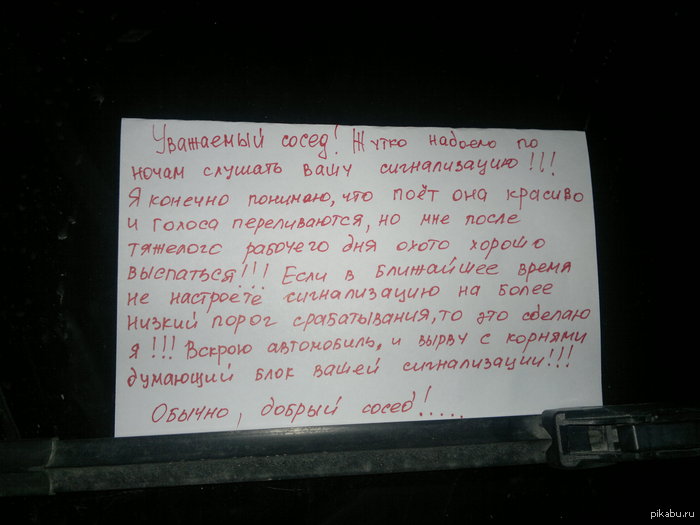 Уважаемый сосед! Жутко надоело по
ночам слушать вашу сигнализацию!!!
Я конечно понимаю, что поёт она красиво
и голоса переливаются, но мне после
тяжелого рабочего дня охото хорошо
выспаться!!! Если в ближайшее время
не настроете сигнализацию на более
низкий порог срабатывания, то это сделаю
я!!! Вскрою автомобиль, и вырву с корнями
думающий блок вашей сигнализации!!!
Обычно, добрый сосед!.....
pikabu.ru